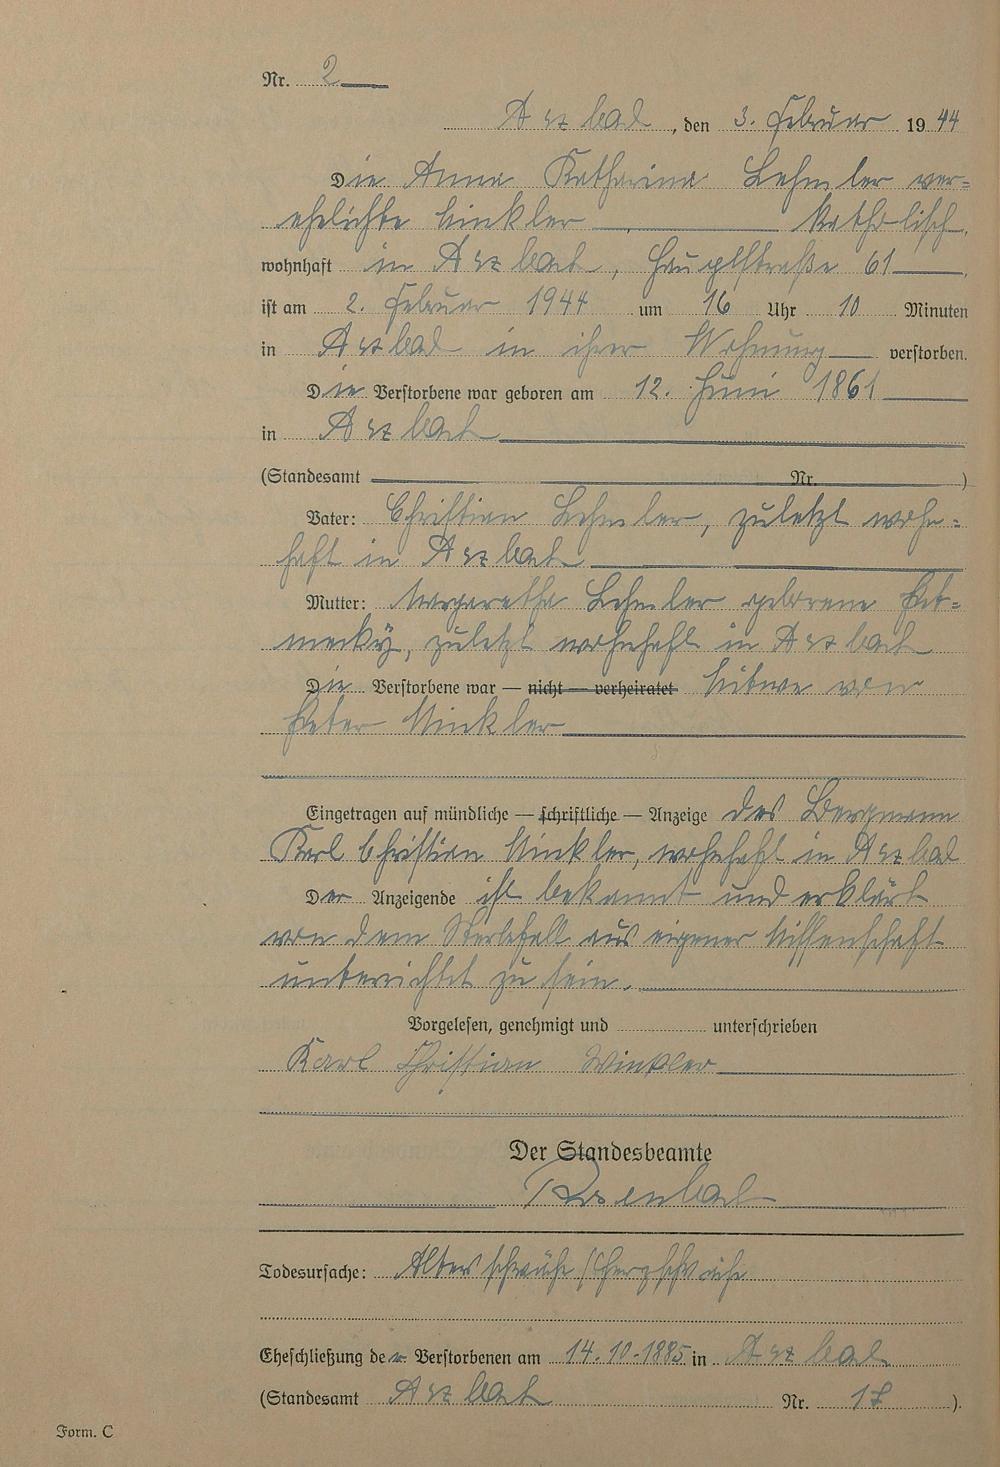 Nr. 2
Arzbach, den 3. Februar 1944
Die Anna Katharina Lehmler ver=
ehelichte Winkler katholisch,
wohnhaft in Arzbach, Hauptstraße 61,
ist am 2. Februar 1944 um 16 Uhr 10 Minuten
in Arzbach in ihrer Wohnung verstorben.
Die Verstorbene war geboren am 12. Juni 1861
in Arzbach
(Standesamt Nr. )
Vater: Christian Lehmler, zuletzt wohn=
haft in Arzbach
Mutter: Margaretha Lehmler geborene
zuletzt wohnhaft in Arzbach
Die Verstorbene war — nicht — verheiratet Witwe von
Peter Winkler
Eingetragen auf mündliche — schriftliche — Anzeige des Bergmann
Karl Christian Winkler, wohnhaft in Arzbach
Der Anzeigende ist bekannt und erklärt
von dem Sterbefall aus eigener Wissenschaft
unterrichtet zu sein.
Vorgelesen, genehmigt und unterschrieben
Karl Christian Winkler
Der Standesbeamte
Rosenbach
Todesursache: Altersschwäche / Herzschwäche
Eheschließung der Verstorbenen am 14.10.1885 in Arzbach
(Standesamt Arzbach Nr. 17 ).
Form. C